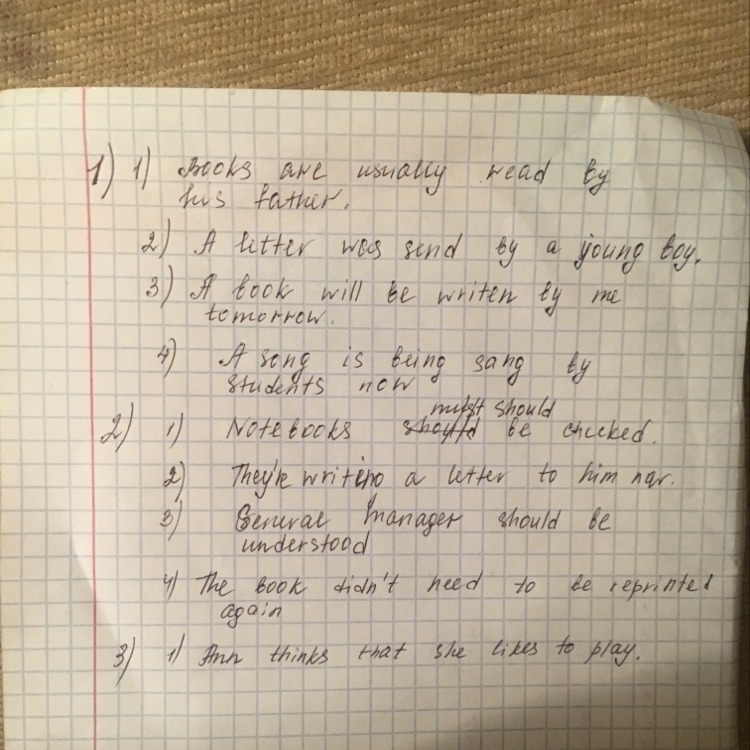 1) 1) Books are usually read by
his father.
2) A litter was send by a young boy.
3) A book will be writen by me
tomorrow.
4) A song is being sang by
students now
must should
2) 1) Notebooks should be checked.
2) They're writing a letter to him now.
3) General manager should be
understood
4) The book didn't need to be reprinted
again
3) 1) Ann thinks that she likes to play.